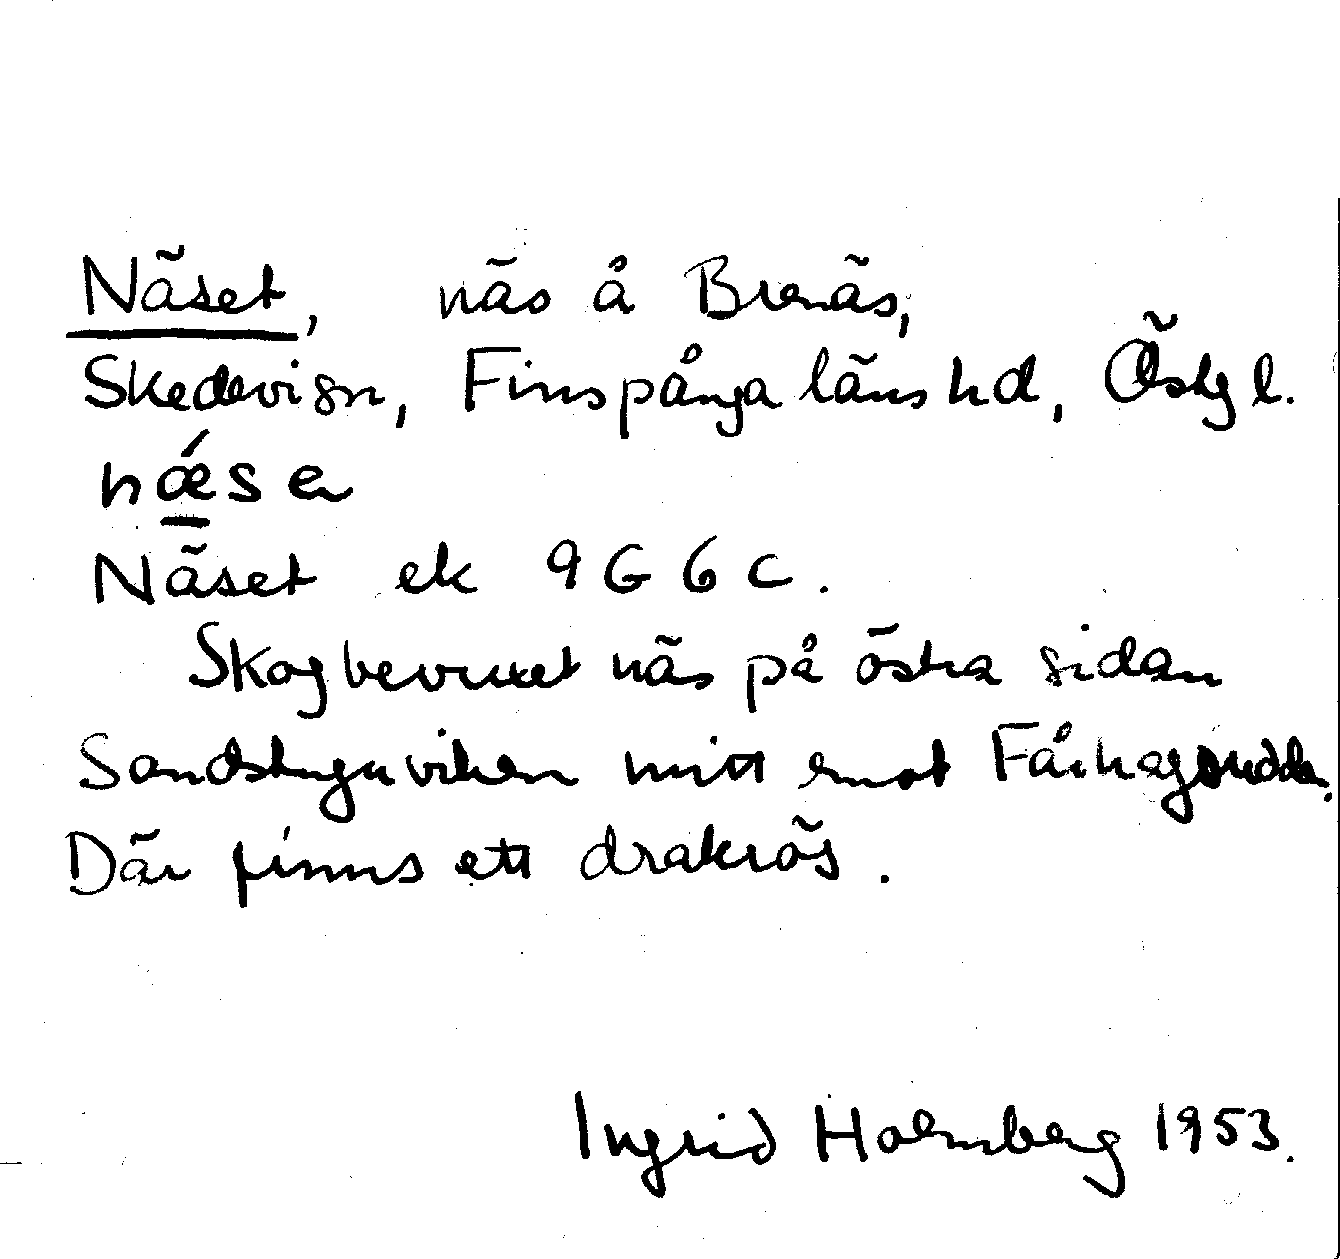 Näset, näs å Brenäs,
Skedevi sn, Finspånga läns hd, Östgl.
nǽse
Näset ek 9G 6c.
Skogbevuxet näs på östra sidan
Sandstuguviken mitt emot Fårhagsudden.
Där finns ett drakrös.
Ingrid Holmberg 1953.